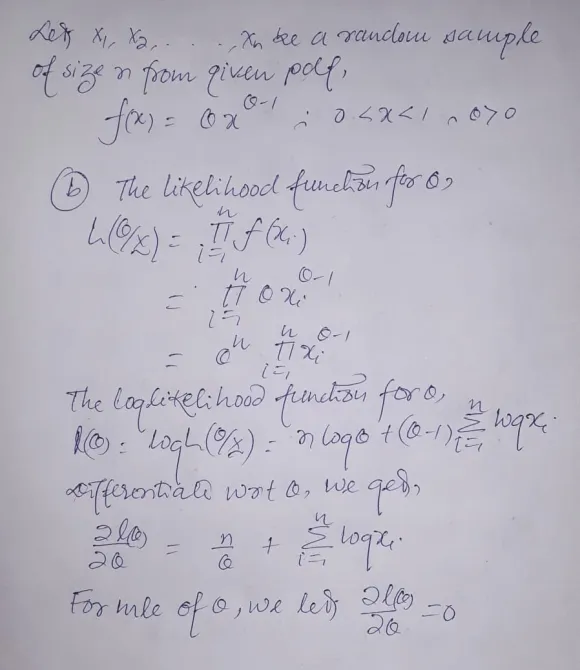 Let x₁, x₂, . . . . ., xₙ be a random sample
of size n from given pdf,
f(x) = θ x^(θ-1) ; 0 < x < 1, θ > 0
(b) The likelihood function for θ,
L(θ/x) = ∏_{i=1}^{n} f(xᵢ)
= ∏_{i=1}^{n} θ xᵢ^(θ-1)
= θⁿ ∏_{i=1}^{n} xᵢ^(θ-1)
The loglikelihood function for θ,
l(θ) = log L(θ/x) = n log θ + (θ-1) ∑_{i=1}^{n} log xᵢ
Differentiate wrt θ, we get,
∂l(θ)/∂θ = n/θ + ∑_{i=1}^{n} log xᵢ.
For mle of θ, we let, ∂l(θ)/∂θ = 0